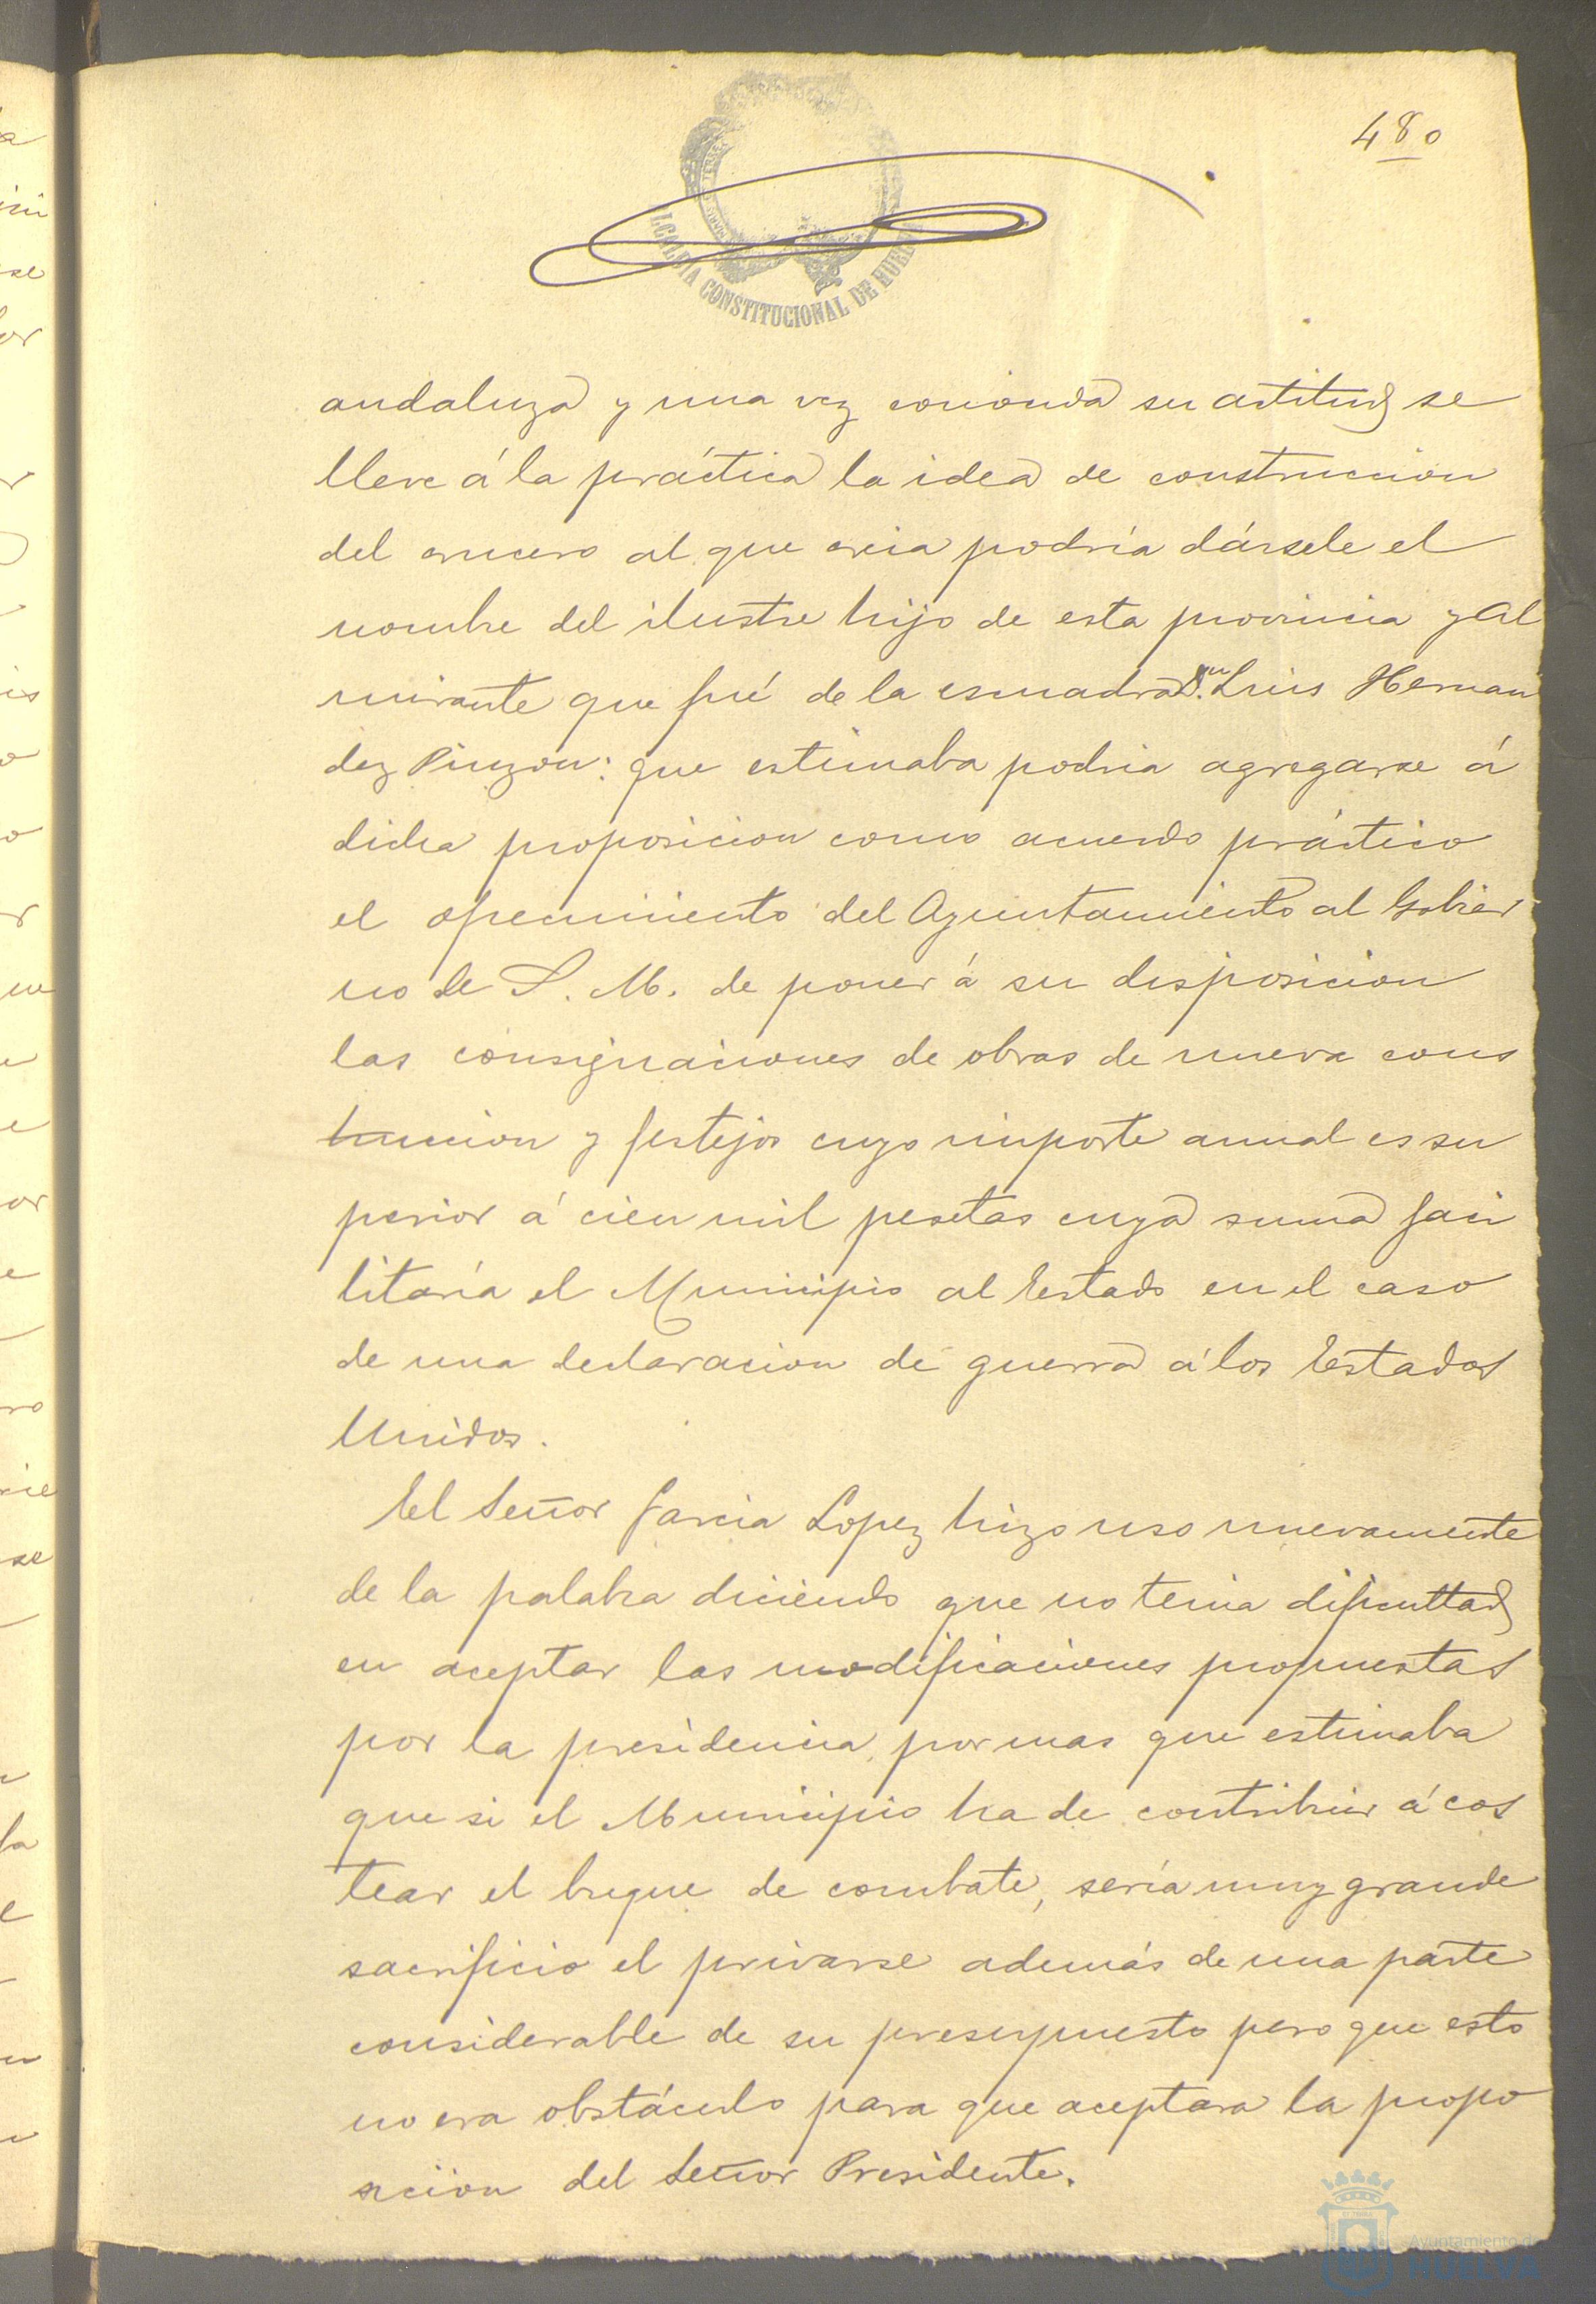 480
ALCALDIA CONSTITUCIONAL DE HUELVA
andaluza y una vez conocida su actitud se
lleve á la práctica la idea de construccion
del crucero al que creia podría dársele el
nombre del ilustre hijo de esta provincia y Al
mirante que fué de la escuadra Dn. Luis Hernan
dez Pinzon: que estimaba podria agregarse á
dicha proposicion como acuerdo práctico
el ofrecimiento del Ayuntamiento al Gobier
no de S. M. de poner á su disposicion
las consignaciones de obras de nueva cons
truccion y festejos cuyo importe anual es su
perior á cien mil pesetas cuya suma faci
litaría el Municipio al Estado en el caso
de una declaracion de guerra á los Estados
Unidos.
El Señor Garcia Lopez hizo uso nuevamente
de la palabra diciendo que no tenia dificultad
en aceptar las modificaciones propuestas
por la presidencia, por mas que estimaba
que si el Municipio ha de contribuir á cos
tear el buque de combate, sería muy grande
sacrificio el privarse además de una parte
considerable de su presupuesto pero que esto
no era obstáculo para que aceptara la propo
sicion del Señor Presidente.
Ayuntamiento de
HUELVA